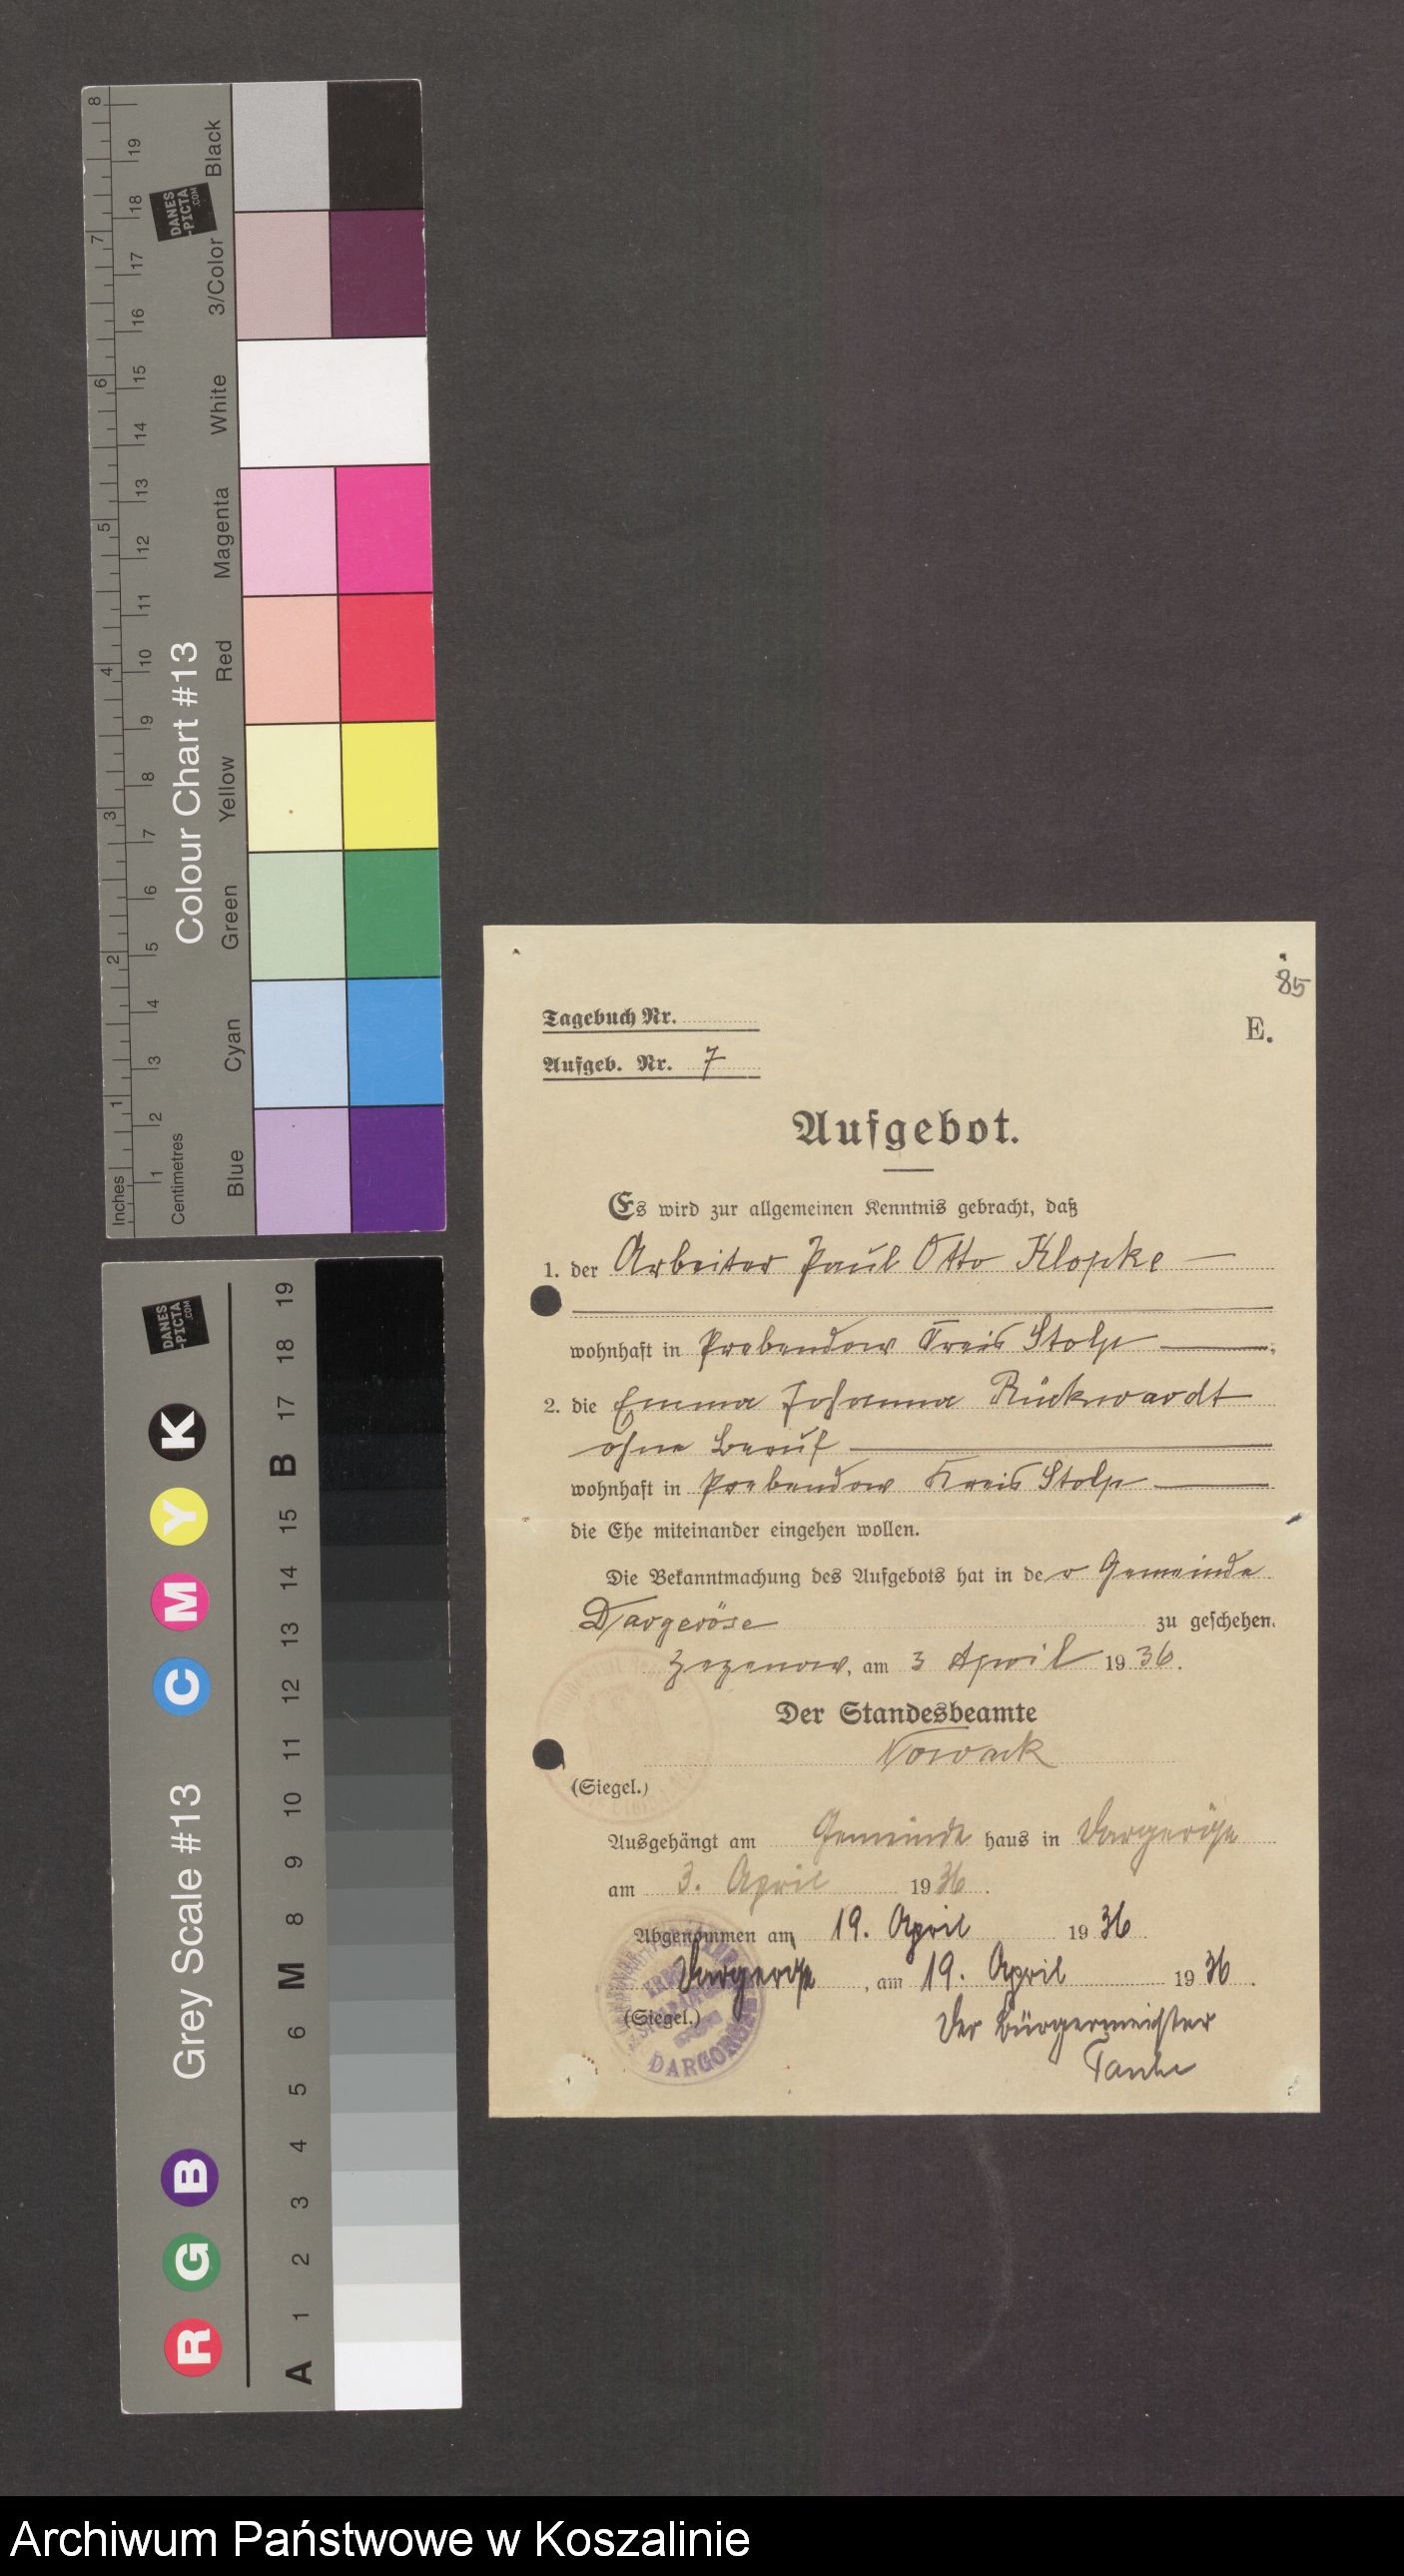 8
7
6
5
4
3
2
1
Inches
19
18
17
16
15
14
13
12
11
10
9
8
7
6
5
4
3
2
1
Centimetres
DANES
-PICTA
.COM
Colour Chart #13
Black
3/Color
White
Magenta
Red
Yellow
Green
Cyan
Blue
85
Tagebuch Nr.
E.
Aufgeb. Nr. 7
Aufgebot.
Es wird zur allgemeinen Kenntnis gebracht, daß
1. der Arbeiter Paul Otto Klopke
wohnhaft in Prebendow Kreis Stolp
2. die Emma Johanna Rückwardt
ohne Beruf
wohnhaft in Prebendow Kreis Stolp
die Ehe miteinander eingehen wollen.
Die Bekanntmachung des Aufgebots hat in der Gemeinde
Dargeröse zu geschehen.
Zezenow, am 3 April 1936.
Der Standesbeamte
Nowack
(Siegel.)
Ausgehängt am Gemeinde haus in Dargeröse
am 3. April 1936.
Abgenommen am 19. April 1936
Dargeröse, am 19. April 1936.
(Siegel.)
DARGORÖSE
Der Bürgermeister
DANES
-PICTA
.COM
Grey Scale #13
R G B C M Y K
A 1 2 3 4 5 6 M 8 9 10 11 12 13 14 15 B 17 18 19
Archiwum Państwowe w Koszalinie